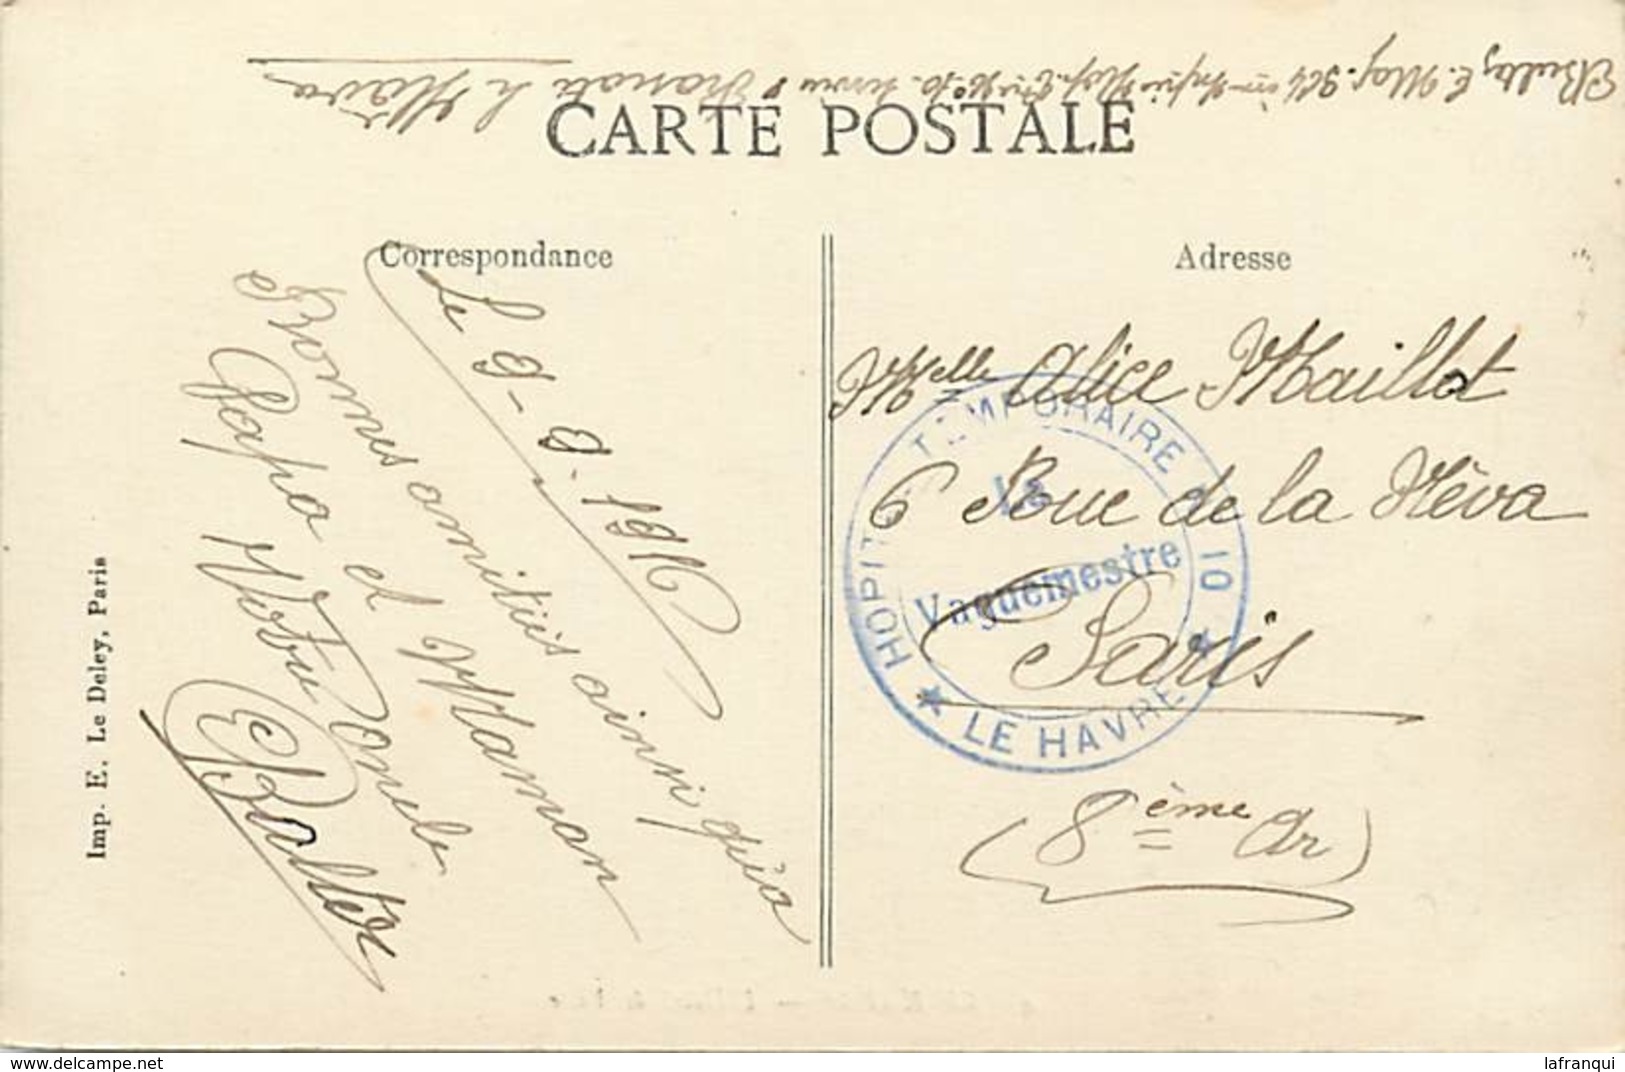 CARTE POSTALE
Correspondance
Adresse
Le 9-9-1916
Bonnes amitiés ainsi qu'a
Papa et Maman
Votre Oncle
Melle Alice Maillot
6 Rue de la Néva
Paris
(8ème Ar)
HOPITAL TEMPORAIRE 10
Le
Vaguemestre
★ LE HAVRE ★
Imp. E. Le Deley, Paris
delcampe.net
lafranqui